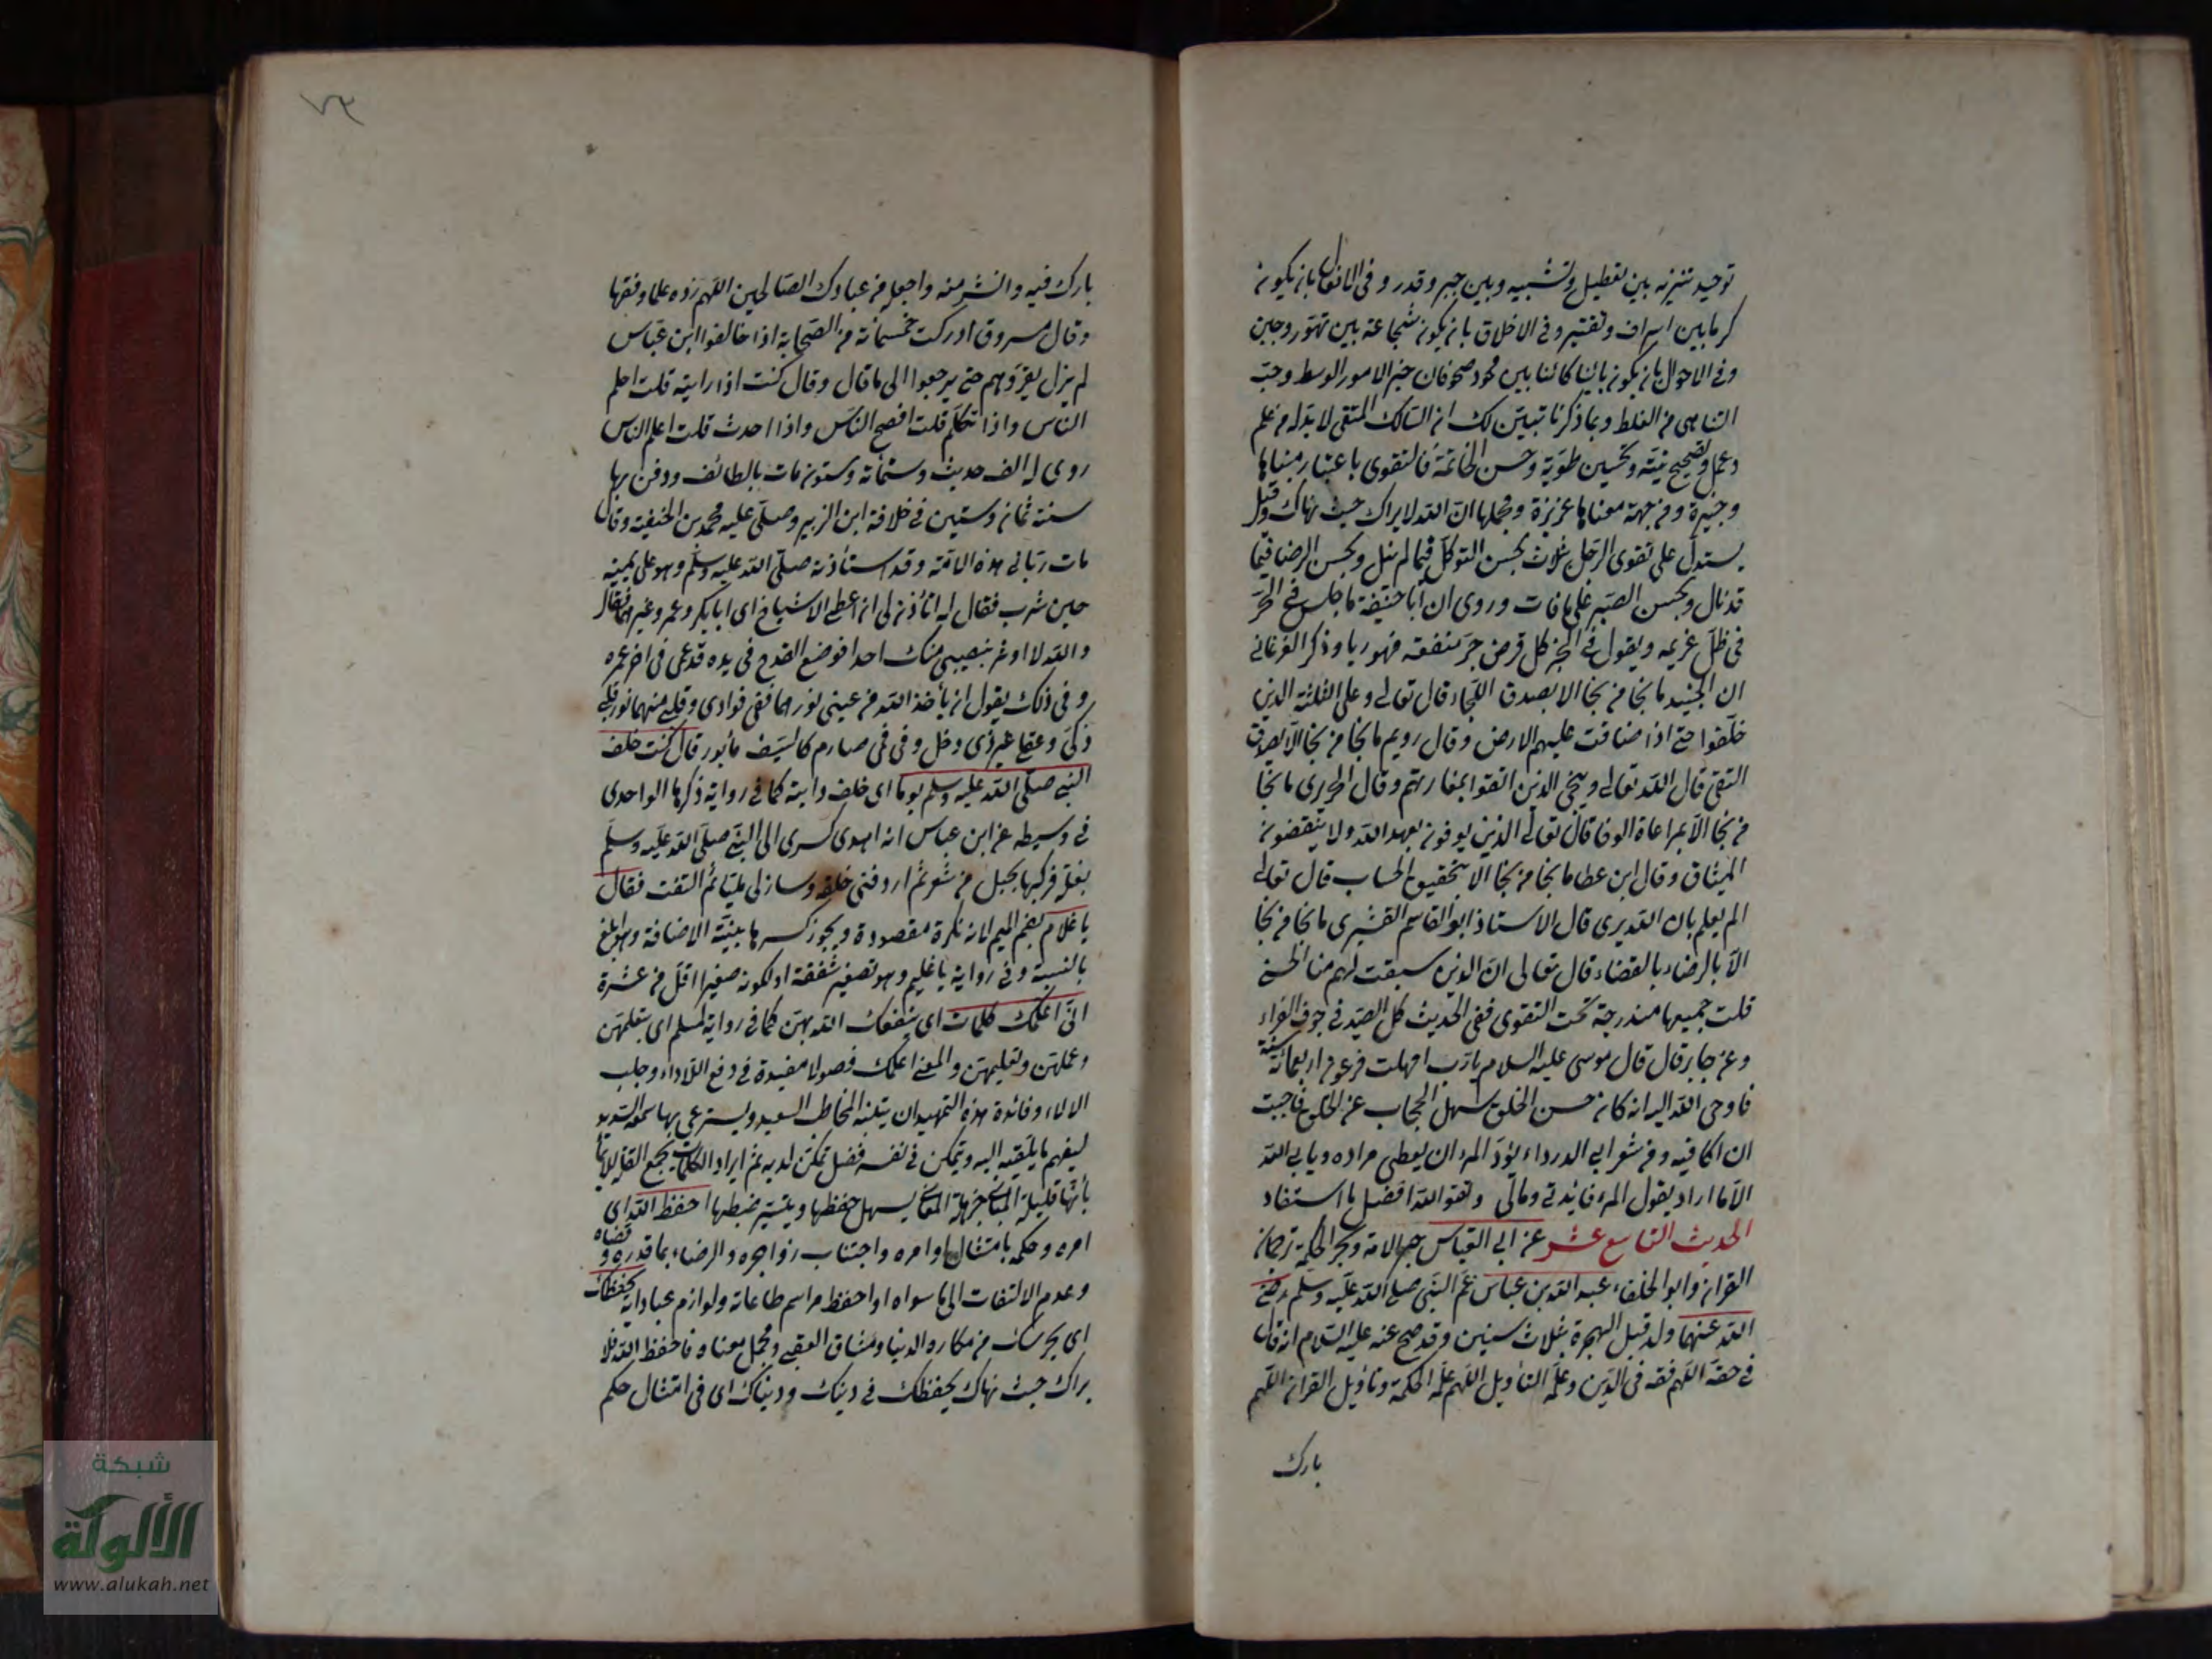 توحيد تنزيه بين تعطيل وتشبيه وبين جبر وقدر وفى الافعال بان يكون
كرما بين اسراف وتقتير وفى الاخلاق بان يكون شجاعة بين تهور وجبن
وفى الاحوال بان يكون بائنا كائنا بين محو وصحو فان خير الامور الوسط وحب
التناهى من الغلط وبما ذكرنا تبين لك ان السالك المتقى لا بد له من علم
وعمل وتصحيح نية وتحسين طوية وحسن الخاتمة فالتقوى باعتبار مبناها
وجيزة ومن جهة معناها عزيزة ومجملها ان الله لا يراك حيث نهاك وقيل
يستدل على تقوى الرجل بثلاث بحسن التوكل فيما لم ينل وبحسن الرضا فيما
قد نال وبحسن الصبر على ما فات وروى ان أبا حنيفة ما جلس فى الحر
فى ظل غريمه ويقول فى الخبر كل قرض جر منفعة فهو ربا وذكر الفرغانى
ان الجنيد ما نجا من نجا الا بصدق اللجاء قال تعالى وعلى الثلثة الذين
خلفوا حتى اذا ضاقت عليهم الارض وقال رويم ما نجا من نجا الا بصدق
التقى قال الله تعالى وينجى الذين اتقوا بمفازتهم وقال الجريرى ما نجا
من نجا الا بمراعاة الوفا قال تعالى الذين يوفون بعهد الله ولا ينقضون
الميثاق وقال ابن عطا ما نجا من نجا الا بتحقيق الحساب قال تعالى
الم يعلم بان الله يرى قال الاستاذ ابو القاسم القشيرى ما نجا من نجا
الا بالرضاء بالقضاء قال تعالى ان الذين سبقت لهم منا الحسنى
قلت جميعها مندرجة تحت التقوى ففى الحديث كل الصيد فى جوف الفراء
وعن جابر قال قال موسى عليه السلام يا رب امهلت فرعون اربعمائة سنة
فاوحى الله اليه انه كان حسن الخلق سهل الحجاب عن الخلق فاحببت
ان اكافيه ومن شعر ابى الدرداء يود المرء ان يعطى مراده ويابى الله
الا ما اراد يقول المرء فائدتى ومالى وتقوا الله افضل ما استفاد
الحديث التاسع عشر عن ابى العباس حبر الامة وبحر الحكمة ترجمان
القران وابو الخلفاء عبد الله بن عباس عم النبى صلى الله عليه وسلم رضى
الله عنهما ولد قبل الهجرة بثلاث سنين وقد صح عنه عليه السلام انه قال
فى حقه اللهم فقه فى الدين وعلمه التاويل اللهم علمه الحكمة وتاويل القران اللهم
بارك
بارك فيه وانشر منه واجعله من عبادك الصالحين اللهم زده علما وفقها
وقال مسروق ادركت خمسمائة من الصحابة اذا خالفوا ابن عباس
لم يزل يقررهم حتى يرجعوا الى ما قال وقال كنت اذا رايته قلت احلم
الناس واذا تكلم قلت افصح الناس واذا احدث قلت اعلم الناس
روى له الف حديث وستمائة وستون مات بالطائف ودفن بها
سنة ثمان وستين فى خلافة ابن الزبير وصلى عليه محمد بن الحنفية وقال
مات ربانى هذه الامة وقد استأذنه صلى الله عليه وسلم وهو على يمينه
حين شرب فقال له اتأذن لى ان اعطى الاشياخ اى ابا بكر وعمر وغيرهما فقال
والله لا اوثر بنصيبى منك احدا فوضع القدح فى يده قد عمى فى اخر عمره
وفى ذلك يقول ان يأخذ الله من عينى نورهما ففى فوادى وقلبى منهما نور قلبى
ذكى وعقلى غير ذى دخل وفى فمى صارم كالسيف مأثور قال كنت خلف
النبى صلى الله عليه وسلم يوما اى خلف دابته كما فى رواية ذكرها الواحدى
فى وسيطه عن ابن عباس انه اهدى كسرى الى النبى صلى الله عليه وسلم
بغلة فركبها بحبل من شعر ثم اردفنى خلفه وسار لى مليا ثم التفت فقال
يا غلام بضم الميم لانه نكرة مقصودة ويجوز كسرها بنية الاضافة وهو ابلغ
بالنسبة وفى رواية يا غليم وهو تصغير شفقة او لكونه صغيرا اقل من عشرة
انى اعلمك كلمات اى ينفعك الله بهن كما فى رواية لمسلم اى بتعلمهن
وعملهن وتعليمهن والمعنى اعلمك فصولا مفيدة فى دفع اللاواء وجلب
الالاء وفائدة هذه التمهيد ان يتنبه المخاطب السعيد ويسترعى بها سمعه السديد
ليفهم ما يلقيه اليه ويتمكن فى نفسه فضل تمكن لديه ثم ايراد الكلمات بجمع القلة للايماء
بانها قليلة المبانى جزيلة المعانى يسهل حفظها ويتيسر ضبطها احفظ الله اى
امره وحكمه بامتثال اوامره واجتناب زواجره والرضاء بما قدره وقضاه
وعدم الالتفات الى ما سواه او احفظ مراسم طاعاته ولوازم عباداته يحفظك
اى يحرسك من مكاره الدنيا ومشاق العقبى ومجمل معناه فاحفظ الله فلا
يراك حيث نهاك يحفظك فى دينك ودنياك اى فى امتثال حكم
شبكة
الألوكة
www.alukah.net